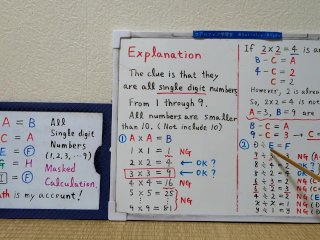 × A = B
C = A
E = (F)
G = H
I = (F)
All
Single digit
Numbers
(1, 2, 3, … 9)
Masked
Calculation.
ath is my account!
Explanation
The clue is that they
are all single digit numbers
From 1 through 9.
All numbers are smaller
than 10. (Not include 10)
① A × A = B
1 × 1 = 1 NG
2 × 2 = 4 ← OK?
3 × 3 = 9 ← OK?
4 × 4 = 16 NG
5 × 5 = 25
9 × 9 = 81
NG
If 2×2 = 4 is
B - C = A
4 - C = 2
C = 2
However, 2 is alread
So, 2×2 = 4 is not
A = 3, B = 9 are
B - C = A
9 - C = 3 → C
② D ÷ E = F
NG
NG
NG
NG
NG